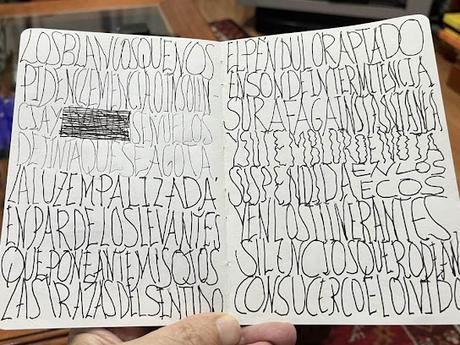 LOS BLANCOS QUE NOS
PIDEN CLEMENCIA O
SEÑUELOS
DE TINTA QUE SE AGOSTA
A LUZ EMPALIZADA
EN PAR DE LOS LEVANTES
QUE PONE ANTE MIS OJOS
LAS DEL SENTIDO
EL PÉNDULO RAPTADO
EN SON DE INTERMITENCIA
SU RAFAGA INSTANTÁNEA
Y ESTE TEMBLOR DE NOTA
SUSPENDIDA EN LOS
ECOS
Y EN LOS ITINERANTES
SILENCIOS QUE RODEAN
CON SU CERCO EL OLVIDO